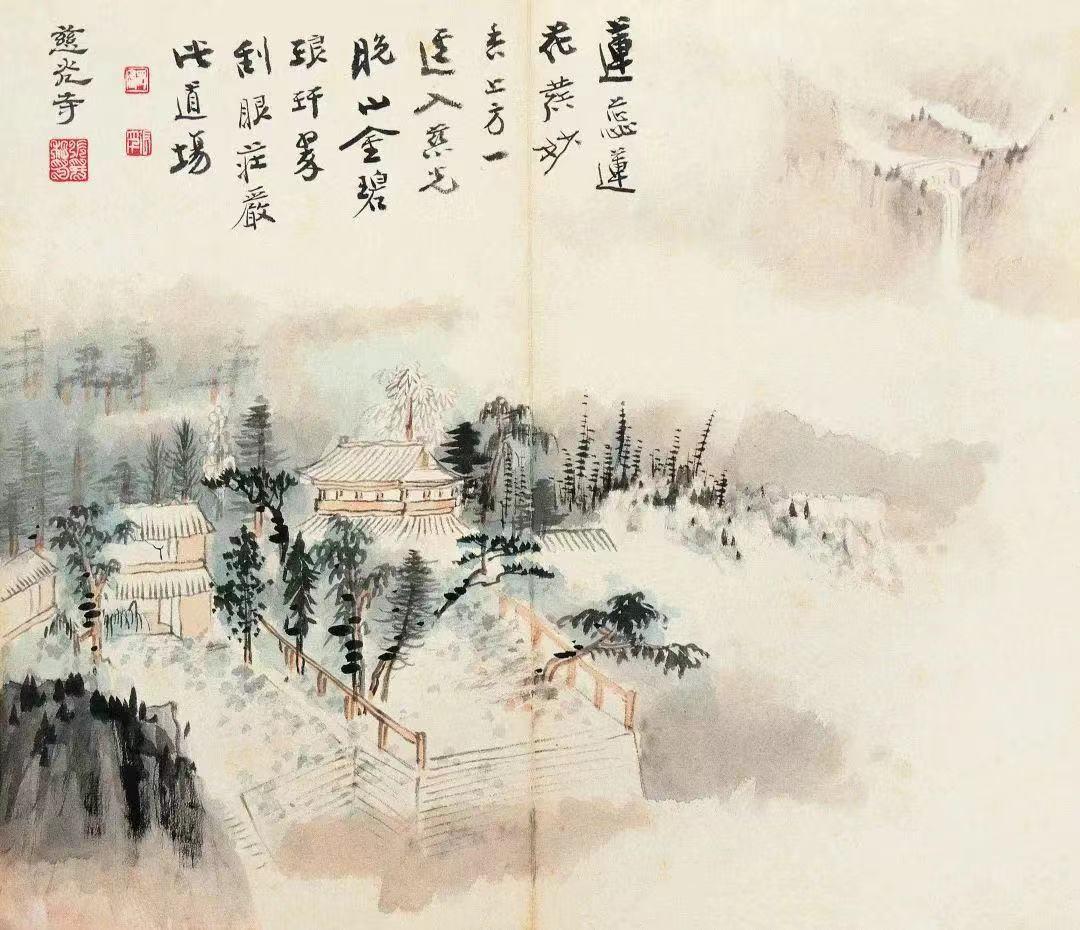 蓮蕊蓮
花發妙
香上方一
逕入慈光
晚山金碧
琅玕翠
刮眼莊嚴
此道場
慈光寺